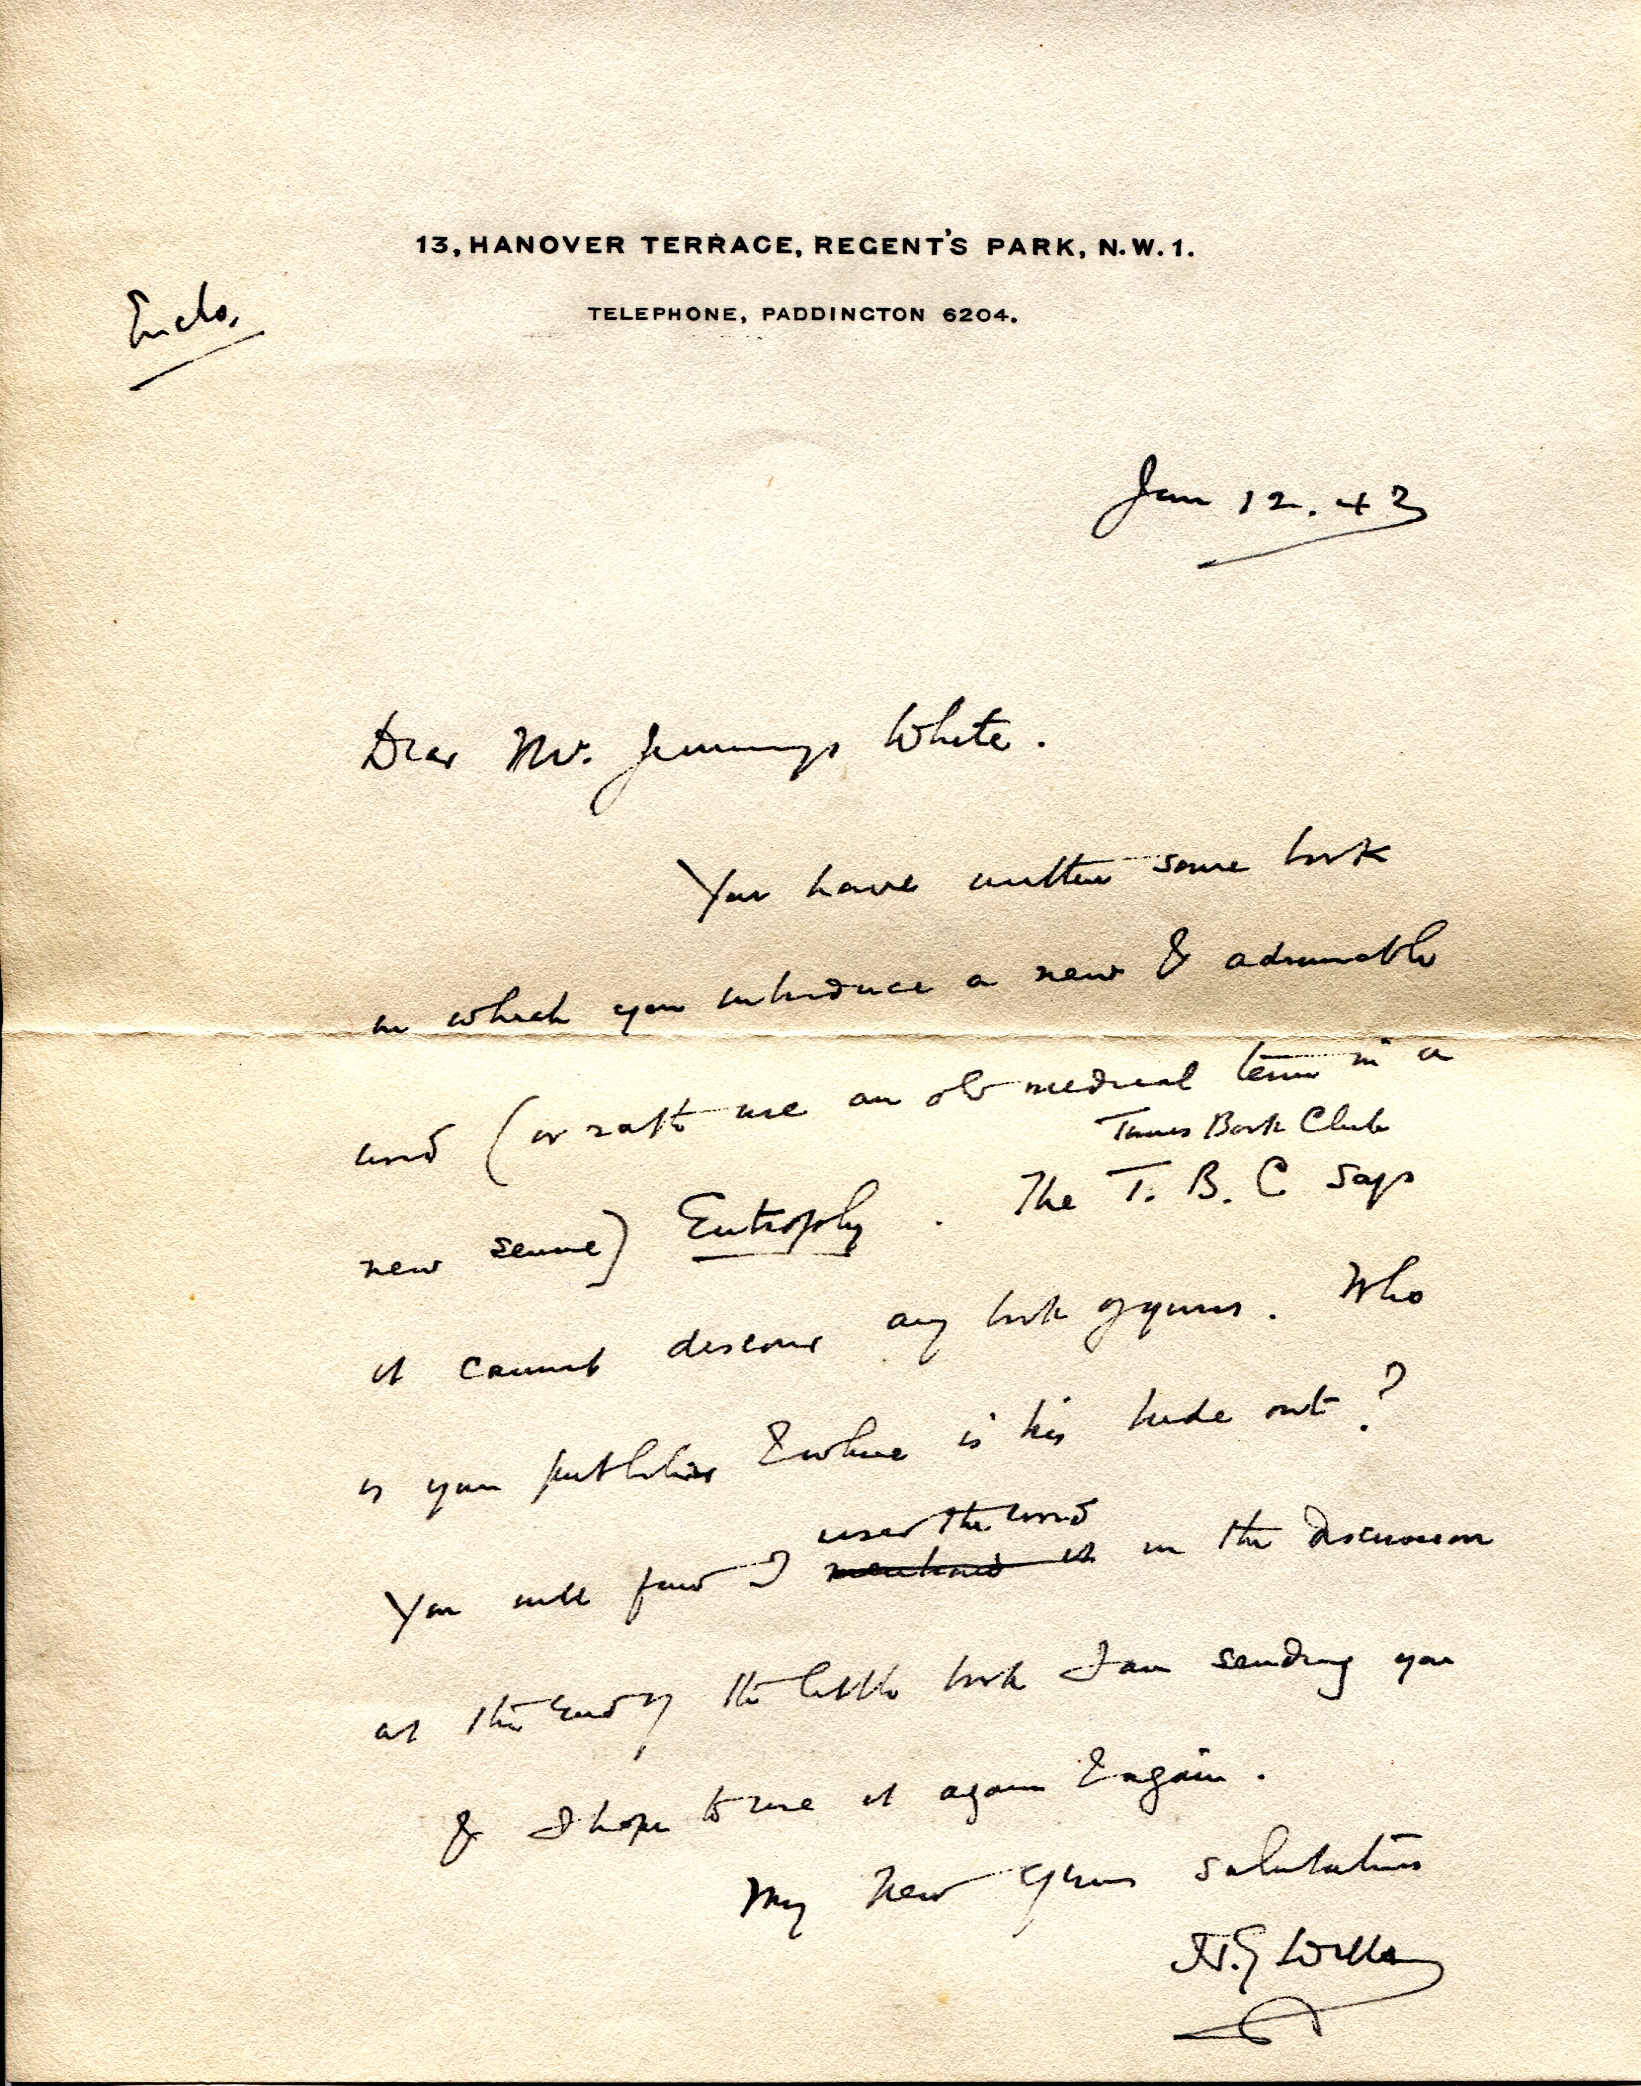 13, HANOVER TERRACE, REGENT'S PARK, N.W.1.
TELEPHONE, PADDINGTON 6204.
Enclo.
Jan 12. 43
Dear Mr. Jennings White.
You have written some book
in which you introduce a new & admirable
word (or rather use an old medical term in a
Times Book Club
new sense) Eutrophy. The T. B. C says
it cannot discover any book of yours. Who
is your publisher & where is his hide out?
used the word
You will find I mentioned it in the discussion
at the end of the little book I am sending you
& I hope to use it again & again.
My New Years salutations
H. G. Wells